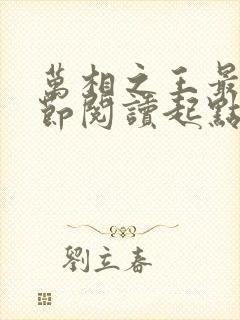 萬相之王最
節閱讀起點
劉立春